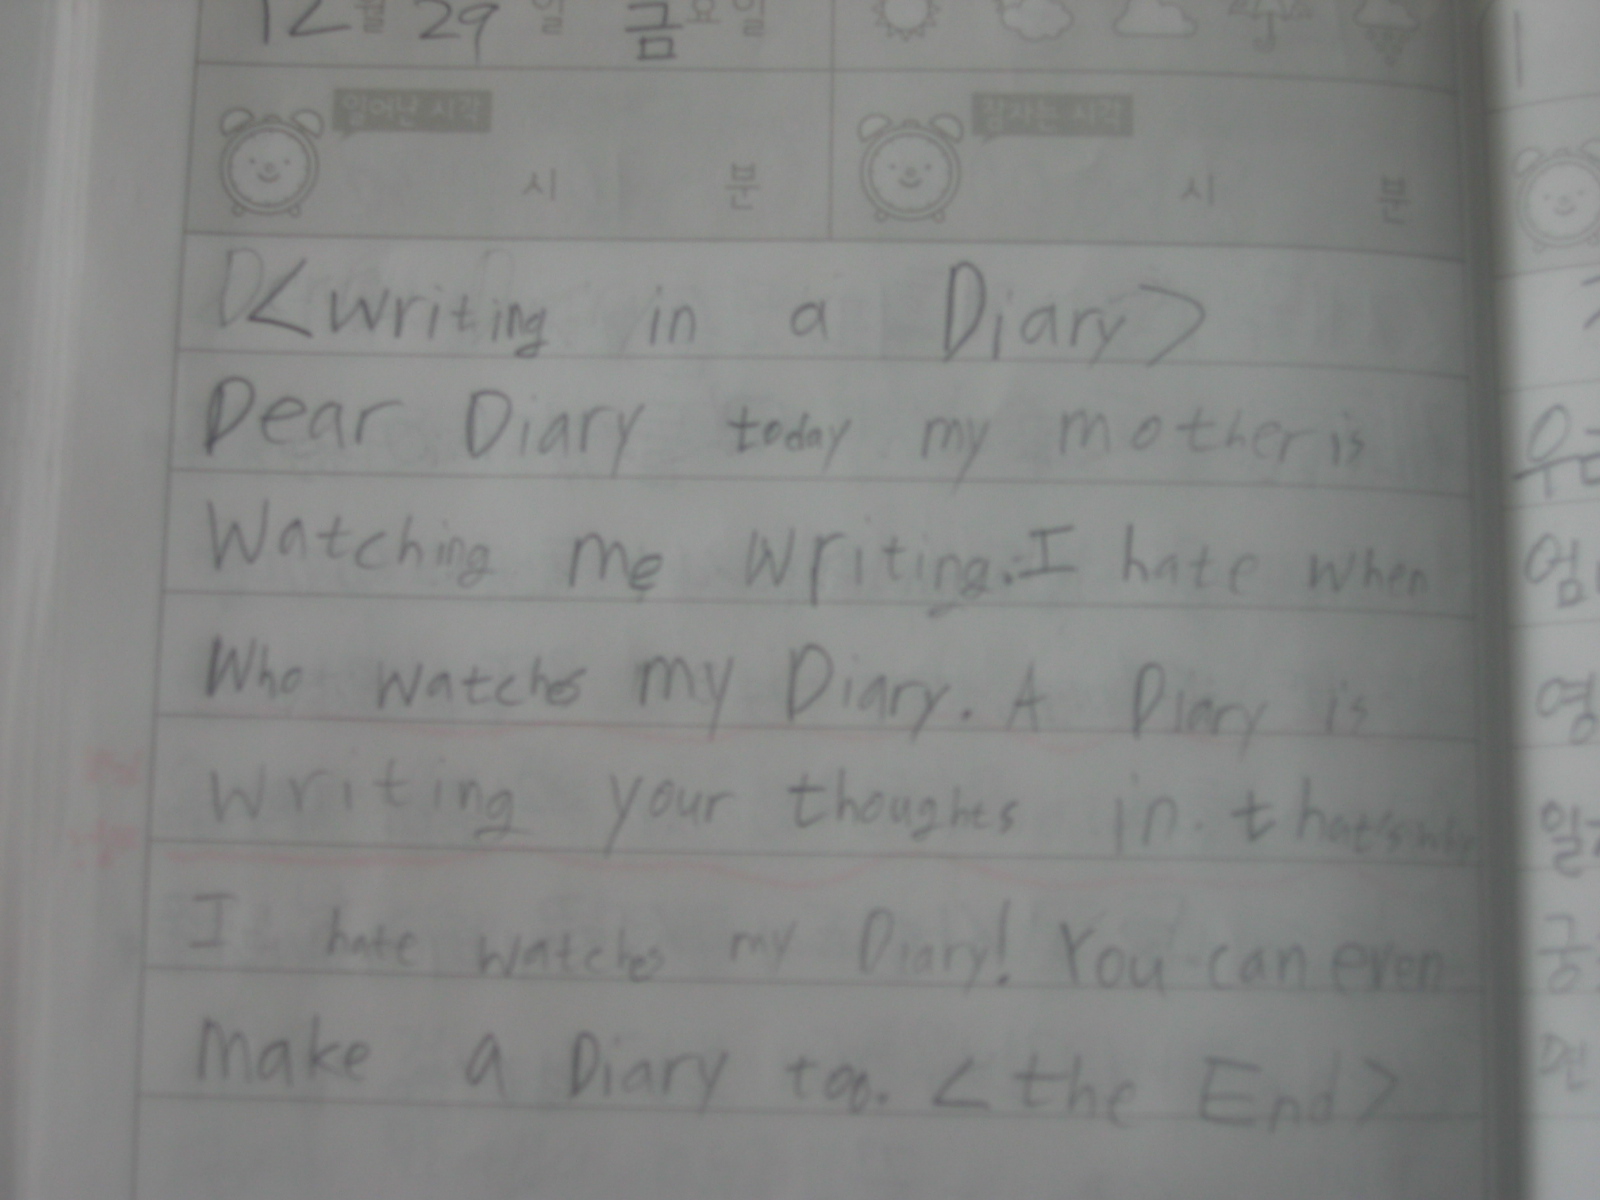 12월 29일 금요일
일어난 시각 잠자는 시각
시 분 시 분
<Writing in a Diary>
Dear Diary today my mother is
Watching me Writing. I hate when
Who watches my Diary. A Diary is
writing your thoughts in. that's why
I hate watches my Diary! You can even
make a Diary too. <the End>
영
일